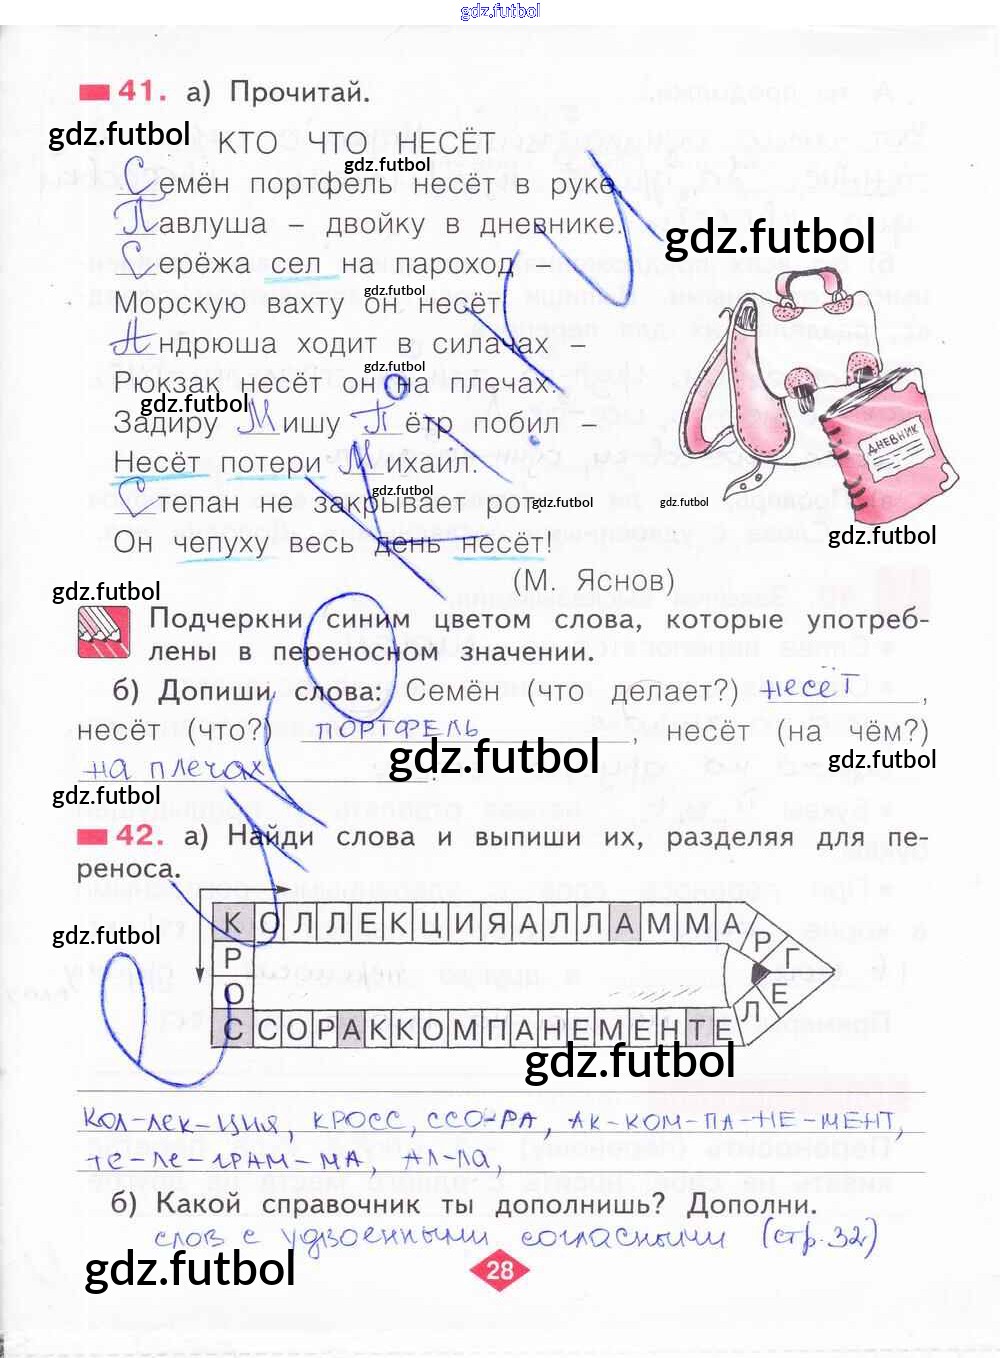 gdz.futbol
41. а) Прочитай.
gdz.futbol
КТО ЧТО НЕСЁТ
gdz.futbol
Семён портфель несёт в руке,
Павлуша – двойку в дневнике.
gdz.futbol
Серёжа сел на пароход –
gdz.futbol
Морскую вахту он несёт.
Андрюша ходит в силачах –
gdz.futbol
Рюкзак несёт он на плечах.
gdz.futbol
Задиру Мишу Пётр побил –
Несёт потери Михаил.
ДНЕВНИК
gdz.futbol
Степан не закрывает рот:
gdz.futbol
gdz.futbol
Он чепуху весь день несёт!
gdz.futbol
(М. Яснов)
gdz.futbol
Подчеркни синим цветом слова, которые употреб-
лены в переносном значении.
б) Допиши слова: Семён (что делает?) несёт,
несёт (что?) портфель, несёт (на чём?)
gdz.futbol
gdz.futbol
на плечах.
gdz.futbol
42. а) Найди слова и выпиши их, разделяя для пе-
реноса.
КОЛЛЕКЦИЯАЛЛАММАРГЕЛ
gdz.futbol
Р
О
ССОРАККОМПАНЕМЕНТЕ
gdz.futbol
кол-лек-ция, кросс, ссо-ра, ак-ком-па-не-мент,
те-ле-грам-ма, ал-ла,
б) Какой справочник ты дополнишь? Дополни.
слов с удвоенными согласными (стр. 32)
gdz.futbol
28